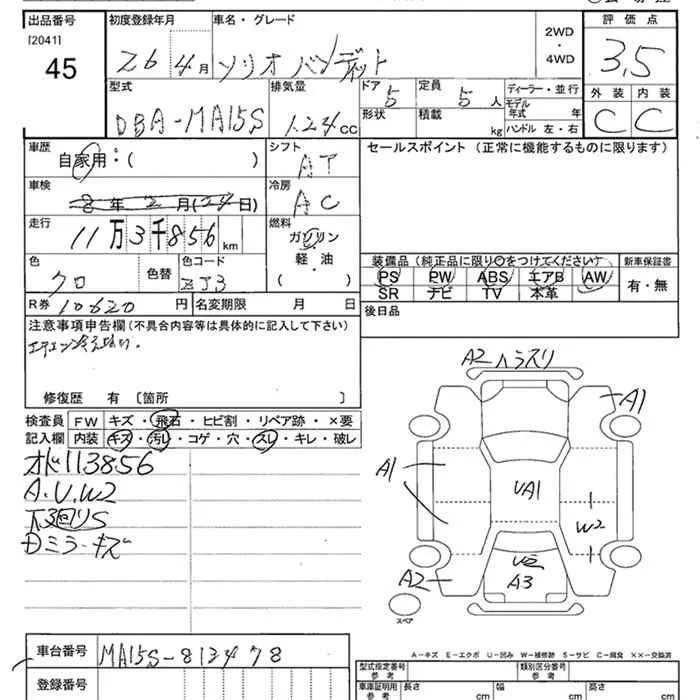 出品番号
[2041]
45
初度登録年月
26年 4月
車名・グレード
ソリオバンディット
2WD
・
4WD
評価点
3.5
外装 内装
C C
型式
DBA-MA15S
排気量
1.24cc
ドア
5
形状
定員
5人
積載
kg
ディーラー・並行
モデル年式 年
ハンドル 左・右
車歴
自家用:( )
シフト
AT
セールスポイント(正常に機能するものに限ります)
車検
8年2月(24日)
冷房
AC
走行
11万3千856km
燃料
ガソリン
・
軽油
( )
色
クロ
色替
色コード
ZJ3
装備品(純正品に限り○をつけてください)
新車保証書
PS PW ABS エアB AW
有・無
SR ナビ TV 本革
R券 10620円
名変期限 月 日
後日品
注意事項申告欄(不具合内容等は具体的に記入して下さい)
修復歴 有 [箇所 ]
A2 ハラスリ
A1
検査員 FW キズ・飛石・ヒビ割・リペア跡・×要
記入欄 内装 キズ・汚レ・コゲ・穴・スレ・キレ・破レ
オド113856
A.U.W2
下回りS
Dミラーキズ
A1
UA1
W2
A2
U2
A3
スペア
A-キズ E-エクボ U-凹み W-補修跡 S-サビ C-腐食 ××-交換済
車台番号 MA15S-813478
登録番号
型式指定番号 参考
類別区分番号 参考
車庫証明用 参考
長さ cm
幅 cm
高さ cm